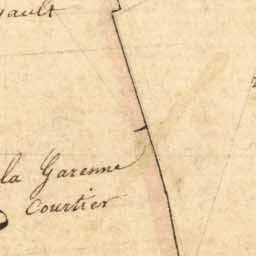 la Garenne
Courtier